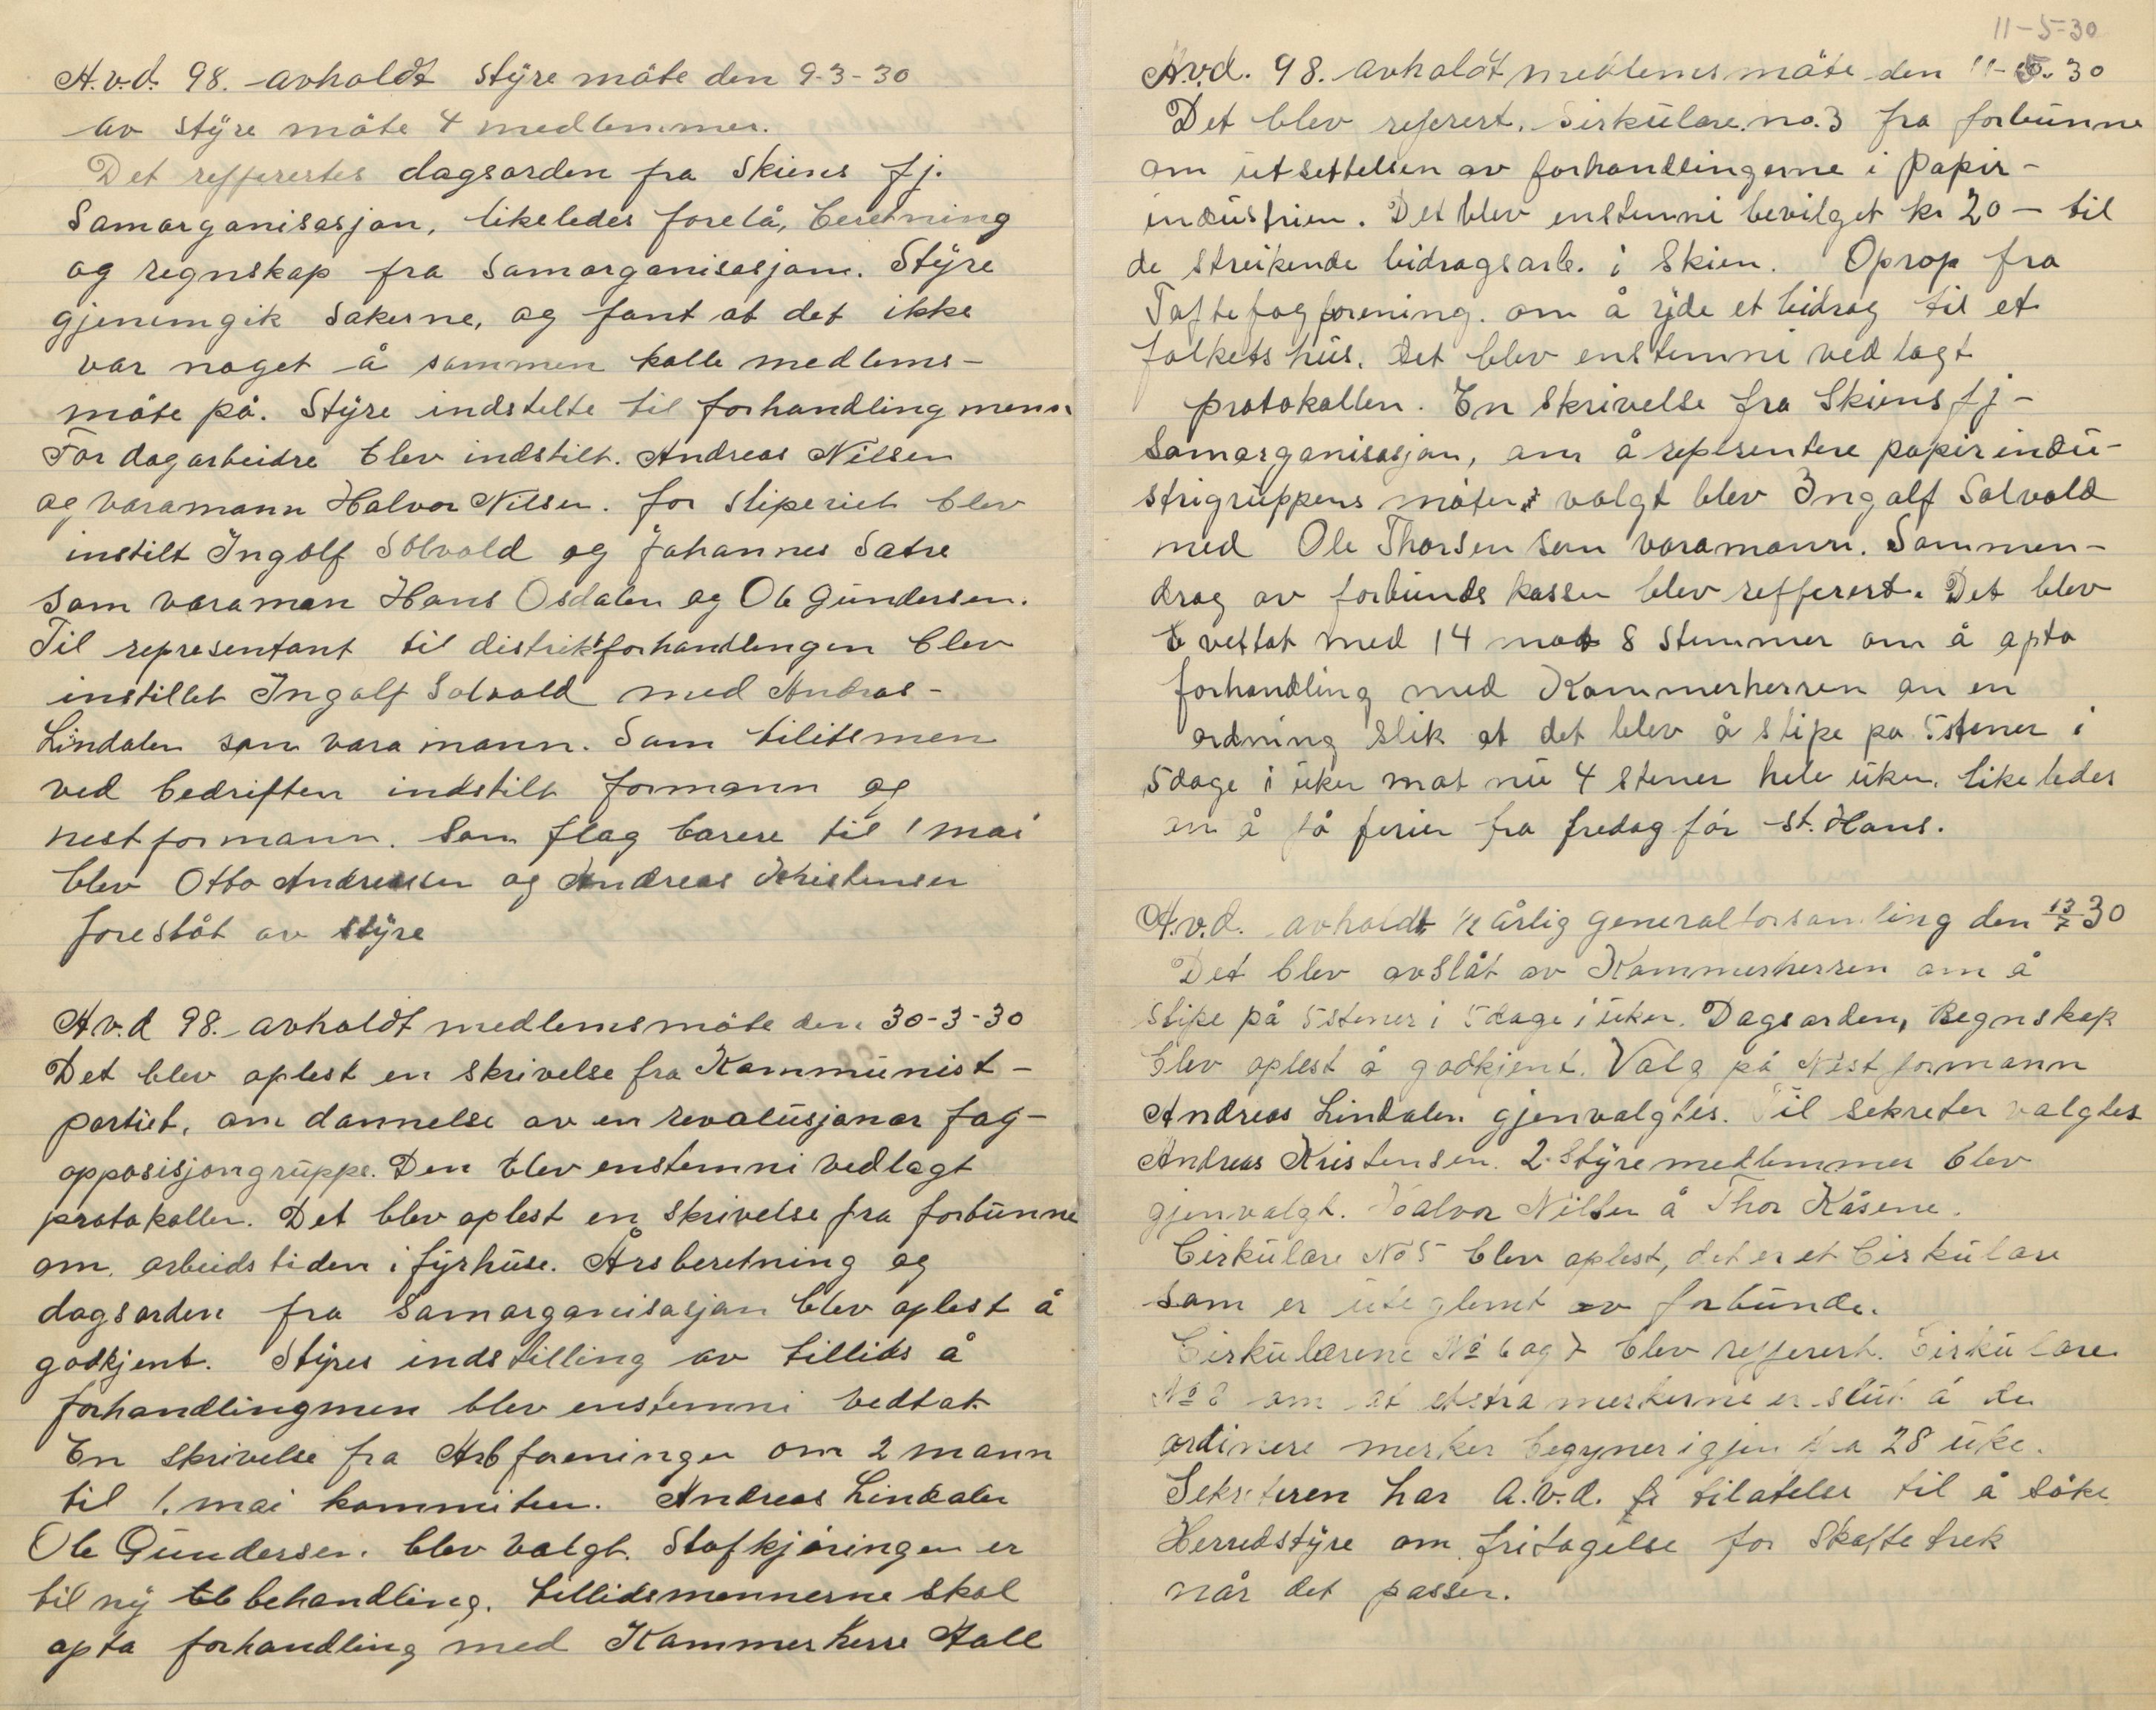 A.v.d. 98. avholdt styre möte den 9-3-30
av styre möte 4 medlemmer.
Det refferertes dagsorden fra Skiens fj.
Samorganisasjon, likeledes forelå, beretning
og regnskap fra Samorganisasjon. Styre
gjenimgik sakerne, og fant at det ikke
var noget å sammen kalle medlems-
möte på. Styre indstelte til forhandling menn
For dagarbeidre blev indstilt. Andreas Nilsen
og varamann Halvor Nilsen. for sliperiet blev
instilt Ingolf Solvold og Johannes Satre
som varaman Hans Osdalen og Ole Gundersen.
Til representant til distriktforhandlingen blev
instillet Ingolf Solvold med Andras-
Lindalen som vara mann. Som tilitsmen
ved bedriften indstilt formann og
nestformann. Som flag barere til 1 mai
blev Otto Andreassen og Andreas Kristensen
foreslåt av styre
A.v.d 98. avholdt medlemsmöte den 30-3-30
Det blev oplest en skrivelse fra Kommunist-
partiet, om dannelse av en revolusjonær fag-
opposisjongruppe. Den blev enstemni vedlagt
protokollen. Det blev oplest en skrivelse fra forbunne
om arbeids tiden i fyrhuse. Årsberetning og
dagsorden fra samorganisasjon blev oplest å
godkjent. Styres indstilling av tillids å
forhandlingmen blev enstemni vedtat.
En skrivelse fra Arbforeningen om 2 mann
til 1. mai kommiteen. Andreas Lindalen
Ole Gundersen. blev valgt. Stofkjöringen er
til ny behandling. tillidsmennerne skal
opta forhandling med Kammerherre Aall
11-5-30
A.v.d. 98. avholdt medlemsmöte den 11-5-30
Det blev referert. Sirkulare no.3 fra forbunne
om utsettelsen av forhandlingerne i papir-
industrien. Det blev enstemni bevilget kr 20 - til
de streikende bidragsarb. i Skien. Oprop fra
Toftefagforening. om å yde et bidrag til et
folkets hus. Det blev enstemni ved lagt
protokollen. En skrivelse fra Skiens fj-
Samorganisasjon, om å representere papirindu-
strigruppens möter valgt blev Ingolf Solvold
med Ole Thorsen som varamann. Sammen-
drag av forbunds kassen blev refferert. Det blev
vettat med 14 mot 8 stemmer om å opta
forhandling med Kammerherren om en
ordning slik at det blev å slipe pa 5 stener i
5 dage i uken mot nu 4 stener hele uken. likeledes
om å få ferien fra fredag för St. Hans.
A.v.d. avholdt 1/2 årlig generalforsamling den 13/7 30
Det blev avslåt av Kammerherren om å
slipe på 5 stener i 5 dage i uken. Dagsorden, Regnskap
blev oplest å godkjent. Valg på Nestformann
Andreas Lindalen gjenvalgtes. Til sekreter valgtes
Andreas Kristensen. 2. Styremedlemmer blev
gjenvalgt. Halvor Nilsen å Thor Kåsene.
Cirkulare No 5 blev oplest, det er et Cirkulare
som er uteglemt av forbunde.
Cirkularene No 6 og 7 blev refferert. Cirkulare
No 8 om at ekstra merkerne er slut å de
ordinere merker begyner igjen fra 28 uke.
Sekreteren har A.v.d. tilatelse til å söke
Herredstyre om fritagelse for Skattetrek
når det passer.